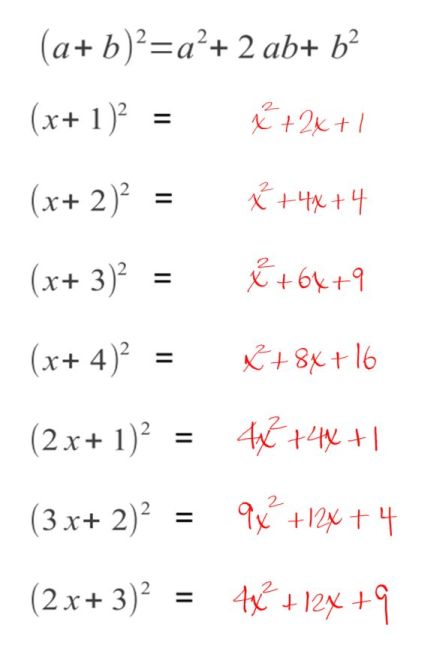 (a+ b)²=a²+ 2 ab+ b²
(x+ 1)² = x²+2x+1
(x+ 2)² = x²+4x+4
(x+ 3)² = x²+6x+9
(x+ 4)² = x²+8x+16
(2x+ 1)² = 4x²+4x+1
(3x+ 2)² = 9x²+12x+4
(2x+ 3)² = 4x²+12x+9